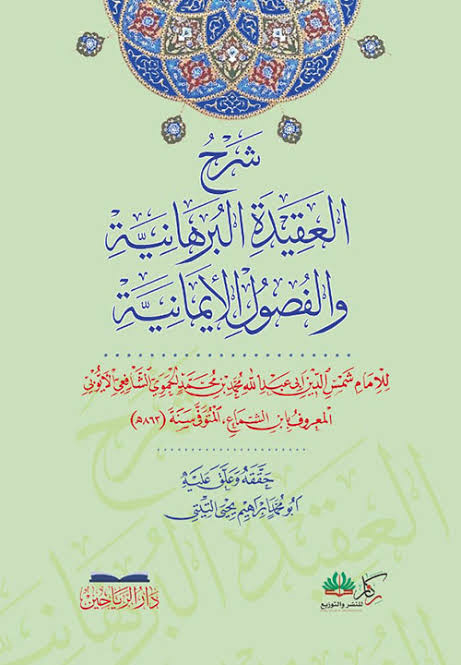 شَرْحُ
العَقِيْدَةِ البُرهَانِيَّةِ
والفُصُولِ الإِيْمَانِيَّةِ
لِلإمَامِ شَمْسِ الدِّين أَبي عَبد الله مُحمَّد بْن مُحَمَّدٍ الحَمَوِيّ الشَّافِعِيّ الأَيُّوبِيّ
المَعرُوفِ بِابْنِ الشَّمَّاعِ، المُتَوَفَّى سَنَةَ (٨٦٣هـ)
حَقَّقَهُ وَعَلَّقَ عَلَيْهِ
أبُو مُحمَّد إبْرَاهِيم يَحْيَى التِّيتِي
دَارُ الرَّيَاحِين
ركاز
للنشر والتوزيع